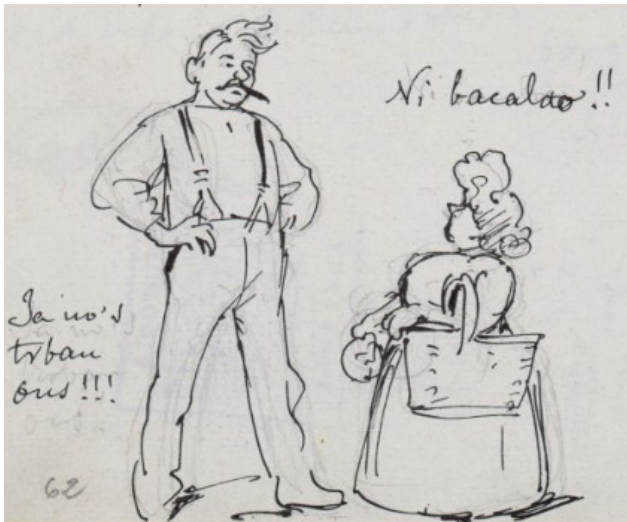 Ni bacalao!!
Ja no's
troban
ous!!!
62